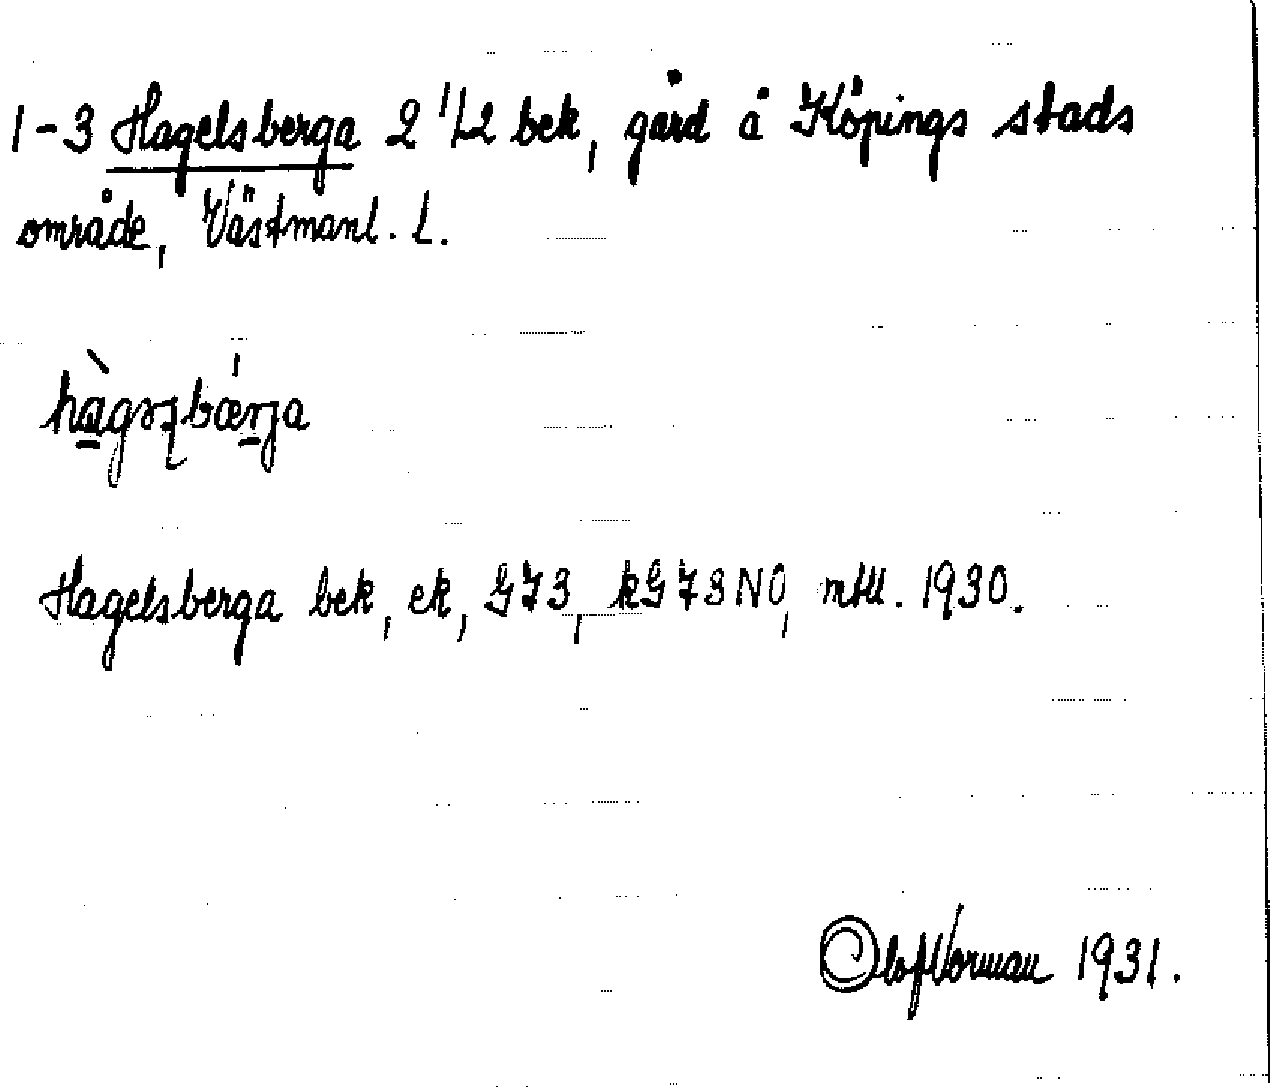 1-3 Hagelsberga 2 1/2 bek, gård å Köpings stads
område, Västmanl. l.
Hagelsberga bek, ek, GJ3, kG73NO, mtl. 1930.
Olof Norman 1931.